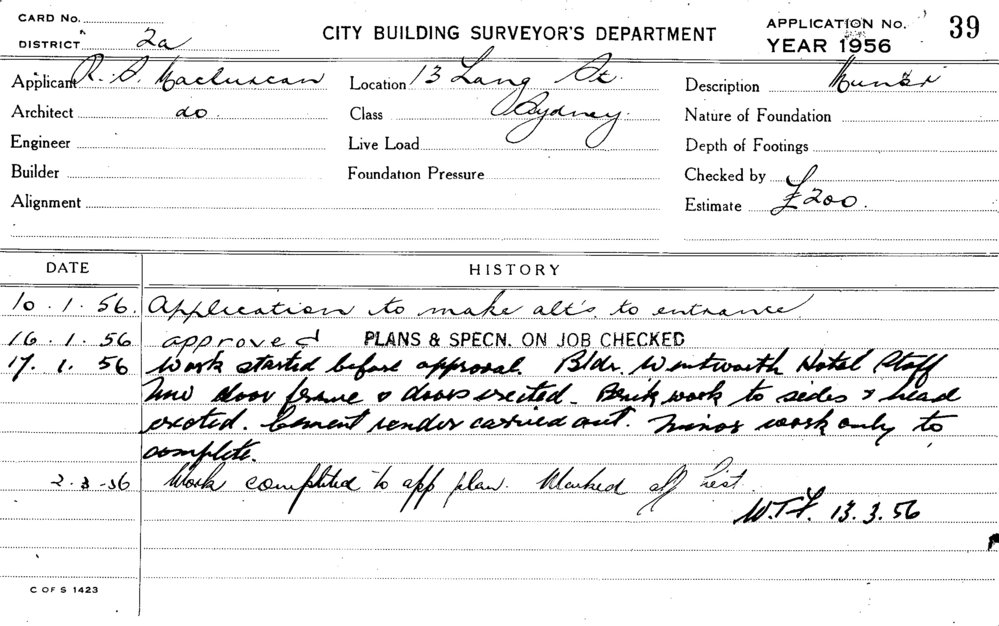 CARD No.
CITY BUILDING SURVEYOR'S DEPARTMENT
APPLICATION No. 39
DISTRICT 2a
YEAR 1956
Applicant R. A.
Location 13 Lang St
Description
Architect do.
Class Sydney.
Nature of Foundation
Engineer
Live Load
Depth of Footings
Builder
Foundation Pressure
Checked by
Alignment
Estimate £200.
DATE HISTORY
10.1.56. Application to make alt's. to entrance
16.1.56 approved PLANS & SPECN. ON JOB CHECKED
17.1.56 Work started before approval. Bldr. Wentworth Hotel Staff
New door frame & doors erected. Brick work to sides & head
erected. Cement render carried out. Minor work only to
complete.
2.3-56 Work completed to app plan. Marked off list.
13.3.56
C OF S 1423